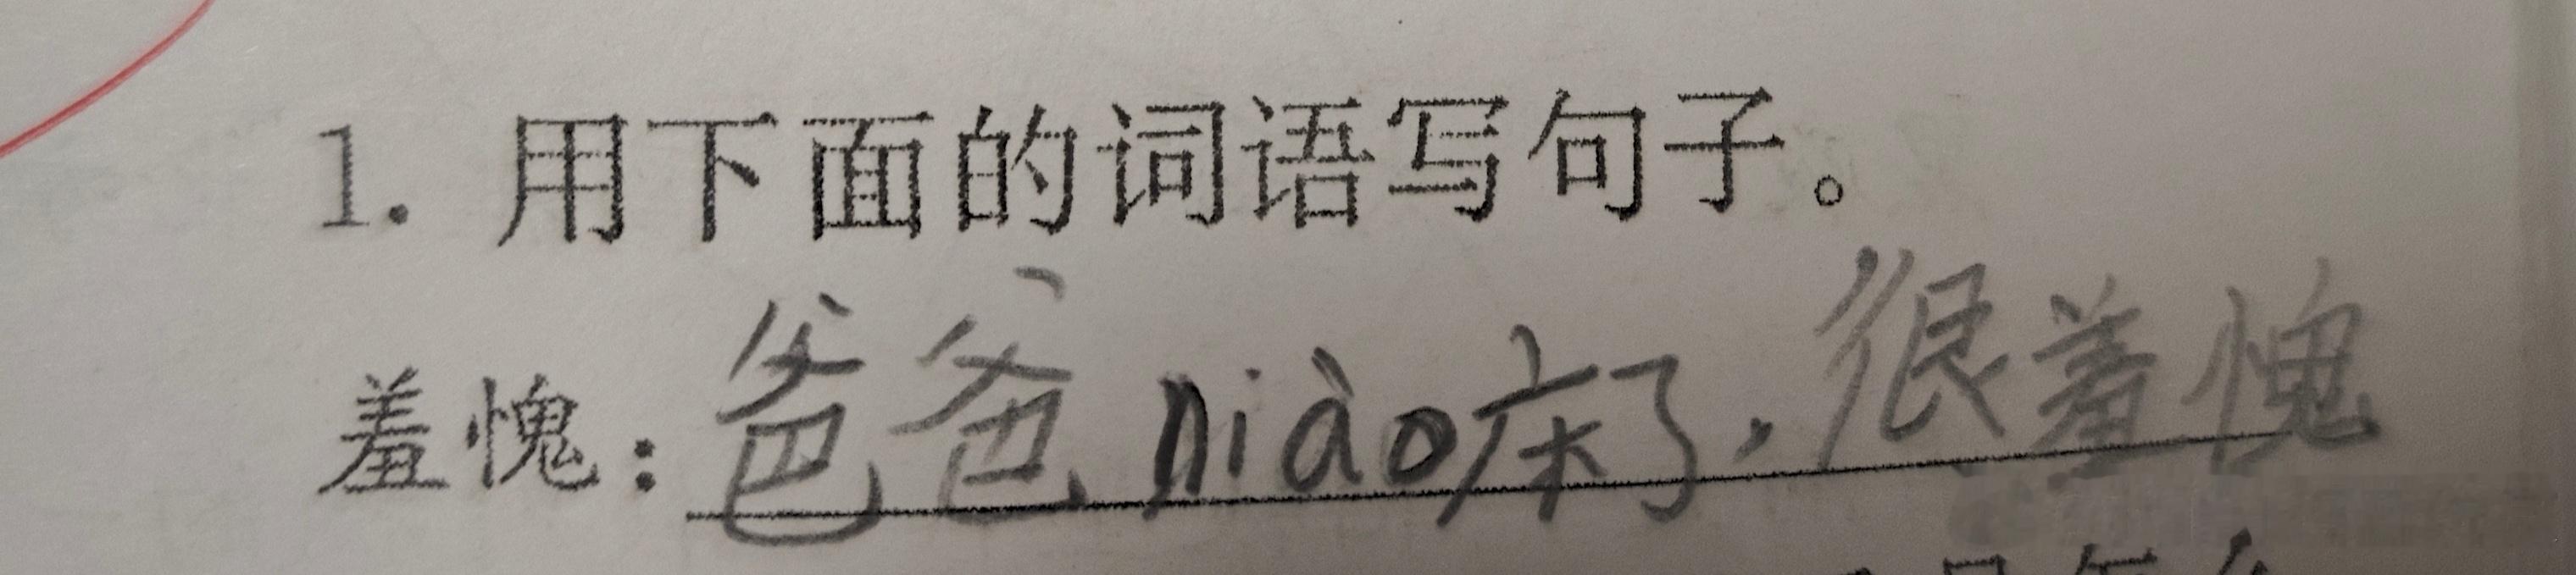 1. 用下面的词语写句子。
羞愧：爸爸niào床了，很羞愧